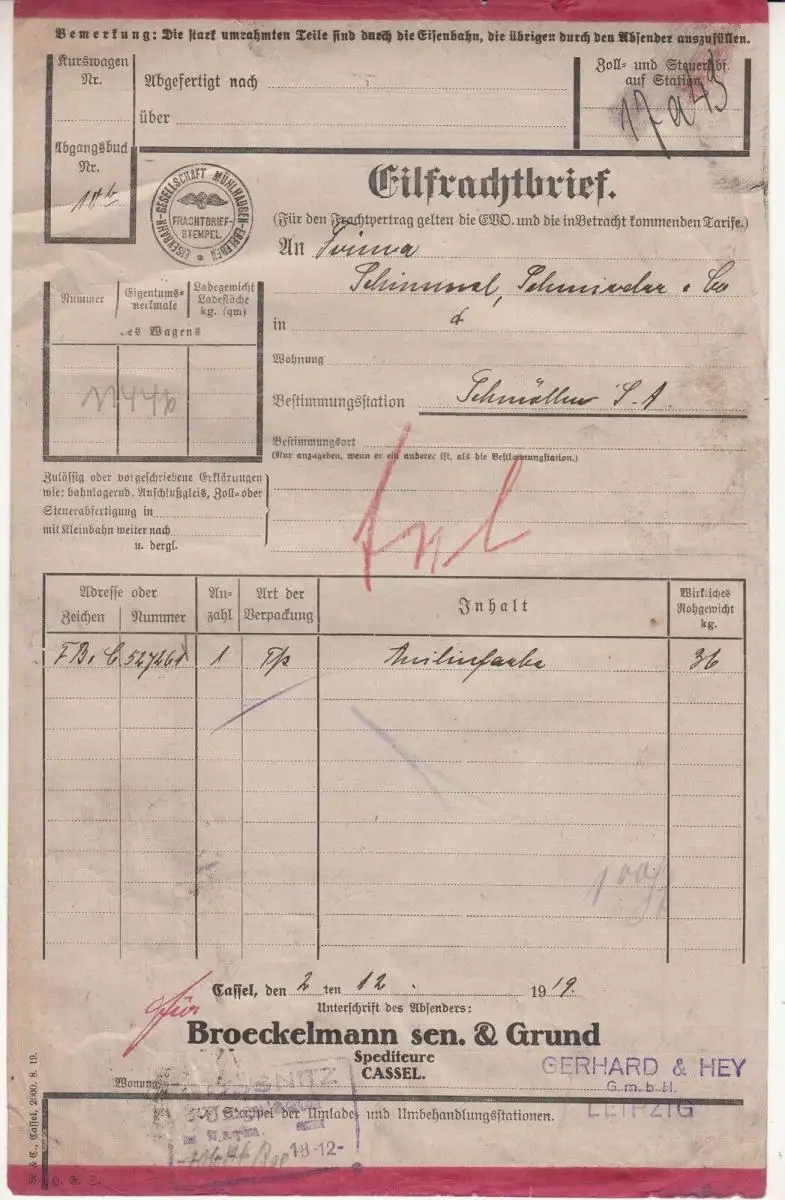 Bemerkung: Die stark umrahmten Teile sind durch die Eisenbahn, die übrigen durch den Absender auszufüllen.
Kurswagen
Nr.
Abgefertigt nach
über
Zoll- und Steuerabf.
auf Station
17 a 43
Abgangsbuch
Nr.
EISENBAHN-GESELLSCHAFT MÜHLHAUSEN-EBELEBEN
FRACHTBRIEF-
STEMPEL
Eilfrachtbrief.
(Für den Frachtvertrag gelten die EVO. und die in Betracht kommenden Tarife.)
An Firma
Schimmel, Schmieder & Co
in
Wohnung
Bestimmungsstation Schmölln S.-A.
Bestimmungsort
(Nur anzugeben, wenn er ein anderer ist, als die Bestimmungstation.)
Nummer
Eigentums-
merkmale
Ladegewicht
Ladefläche
kg. (qm)
des Wagens
Zulässig oder vorgeschriebene Erklärungen
wie: bahnlagernd, Anschlußgleis, Zoll- oder
Steuerabfertigung in
mit Kleinbahn weiter nach
u. dergl.
Adresse oder
Zeichen Nummer
An-
zahl
Art der
Verpackung
Inhalt
Wirkliches
Rohgewicht
kg.
F.B. & C 527261 1 Anilinfarbe 36
Cassel, den 2 ten 12. 1919.
Unterschrift des Absenders:
für
Broeckelmann sen. & Grund
Spediteure
CASSEL.
Wonung
GERHARD & HEY
G.m.b.H.
LEIPZIG
Stempel der Umlade- und Umbehandlungsstationen.
18-12-
W. & C., Cassel, 2000. 8. 19.